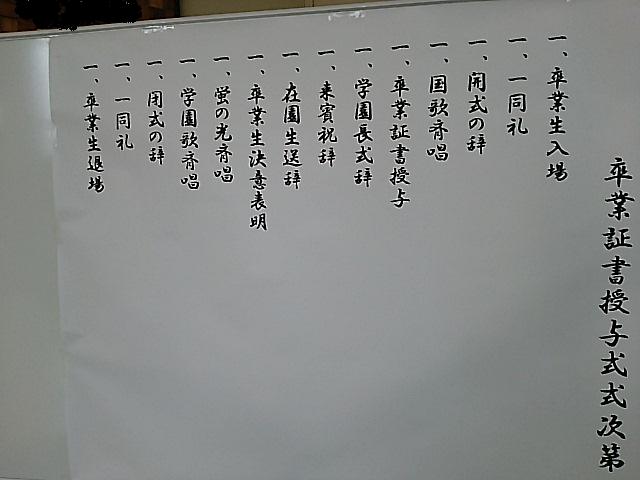 卒業証書授与式式次第
一、卒業生入場
一、一同礼
一、開式の辞
一、国歌斉唱
一、卒業証書授与
一、学園長式辞
一、来賓祝辞
一、在園生送辞
一、卒業生決意表明
一、蛍の光斉唱
一、学園歌斉唱
一、閉式の辞
一、一同礼
一、卒業生退場